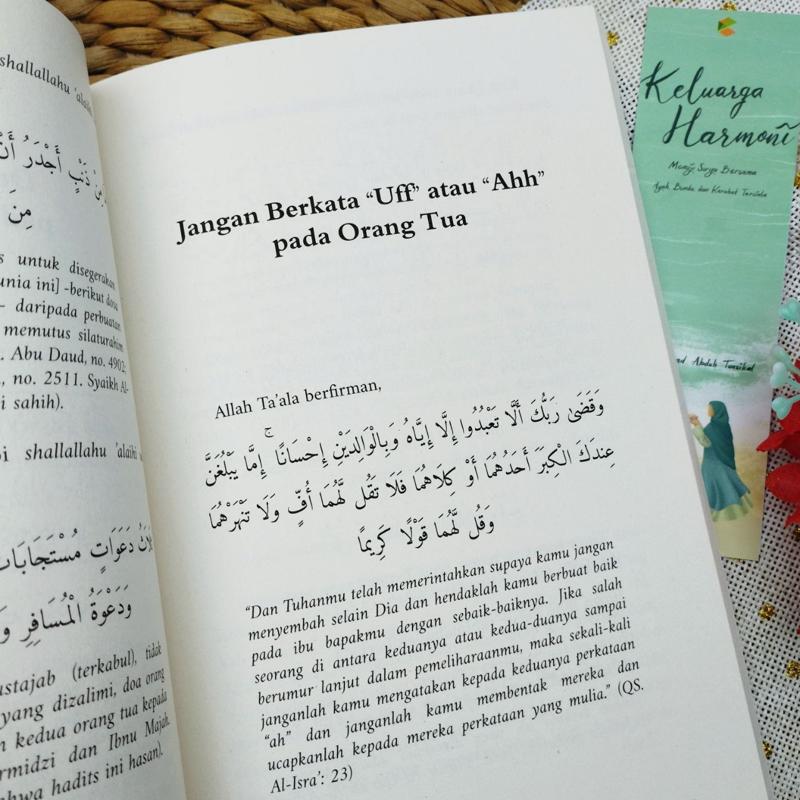 shallallahu 'alaihi
ذَنْبٍ أَجْدَرُ أَنْ
مِنَ
untuk disegerakan
unia ini] -berikut dosa
– daripada perbuatan
memutus silaturahim
. Abu Daud, no. 4902;
, no. 2511. Syaikh Al-
i sahih).
shallallahu 'alaihi
دَعَوَاتٍ مُسْتَجَابَاتٌ
وَدَعْوَةُ الْمُسَافِرِ وَ
ustajab (terkabul), tidak
yang dizalimi, doa orang
n kedua orang tua kepada
rmidzi dan Ibnu Majah.
ahwa hadits ini hasan).
Jangan Berkata “Uff” atau “Ahh”
pada Orang Tua
Allah Ta'ala berfirman,
وَقَضَىٰ رَبُّكَ أَلَّا تَعْبُدُوا إِلَّا إِيَّاهُ وَبِالْوَالِدَيْنِ إِحْسَانًا ۚ إِمَّا يَبْلُغَنَّ
عِندَكَ الْكِبَرَ أَحَدُهُمَا أَوْ كِلَاهُمَا فَلَا تَقُل لَّهُمَا أُفٍّ وَلَا تَنْهَرْهُمَا
وَقُل لَّهُمَا قَوْلًا كَرِيمًا
“Dan Tuhanmu telah memerintahkan supaya kamu jangan
menyembah selain Dia dan hendaklah kamu berbuat baik
pada ibu bapakmu dengan sebaik-baiknya. Jika salah
seorang di antara keduanya atau kedua-duanya sampai
berumur lanjut dalam pemeliharaanmu, maka sekali-kali
janganlah kamu mengatakan kepada keduanya perkataan
“ah” dan janganlah kamu membentak mereka dan
ucapkanlah kepada mereka perkataan yang mulia.” (QS.
Al-Isra': 23)
Keluarga
Harmoni
Surga Bersama
Ayah Bunda dan Kerabat
Abduh Tuasikal